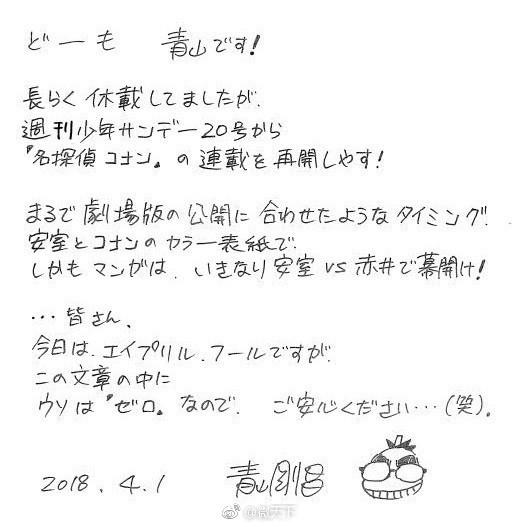 どーも 青山です!
長らく休載してましたが、
週刊少年サンデー20号から
『名探偵コナン』の連載を再開しやす!
まるで劇場版の公開に合わせたようなタイミング、
安室とコナンのカラー表紙で、
しかもマンガは、いきなり安室vs赤井で幕開け!
…皆さん、
今日は、エイプリル、フールですが、
この文章の中に
ウソは『ゼロ』なので、ご安心ください…(笑)。
2018.4.1 青山剛昌
@微天下